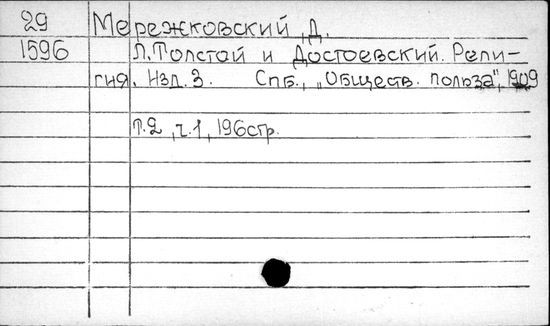 29 Мережковский, Д.
1596 Л. Толстой и Достоевский. Рели-
гия. Изд. 3. Спб., „Обществ. польза", 1909
Т. 2, ч. 1, 196 стр.